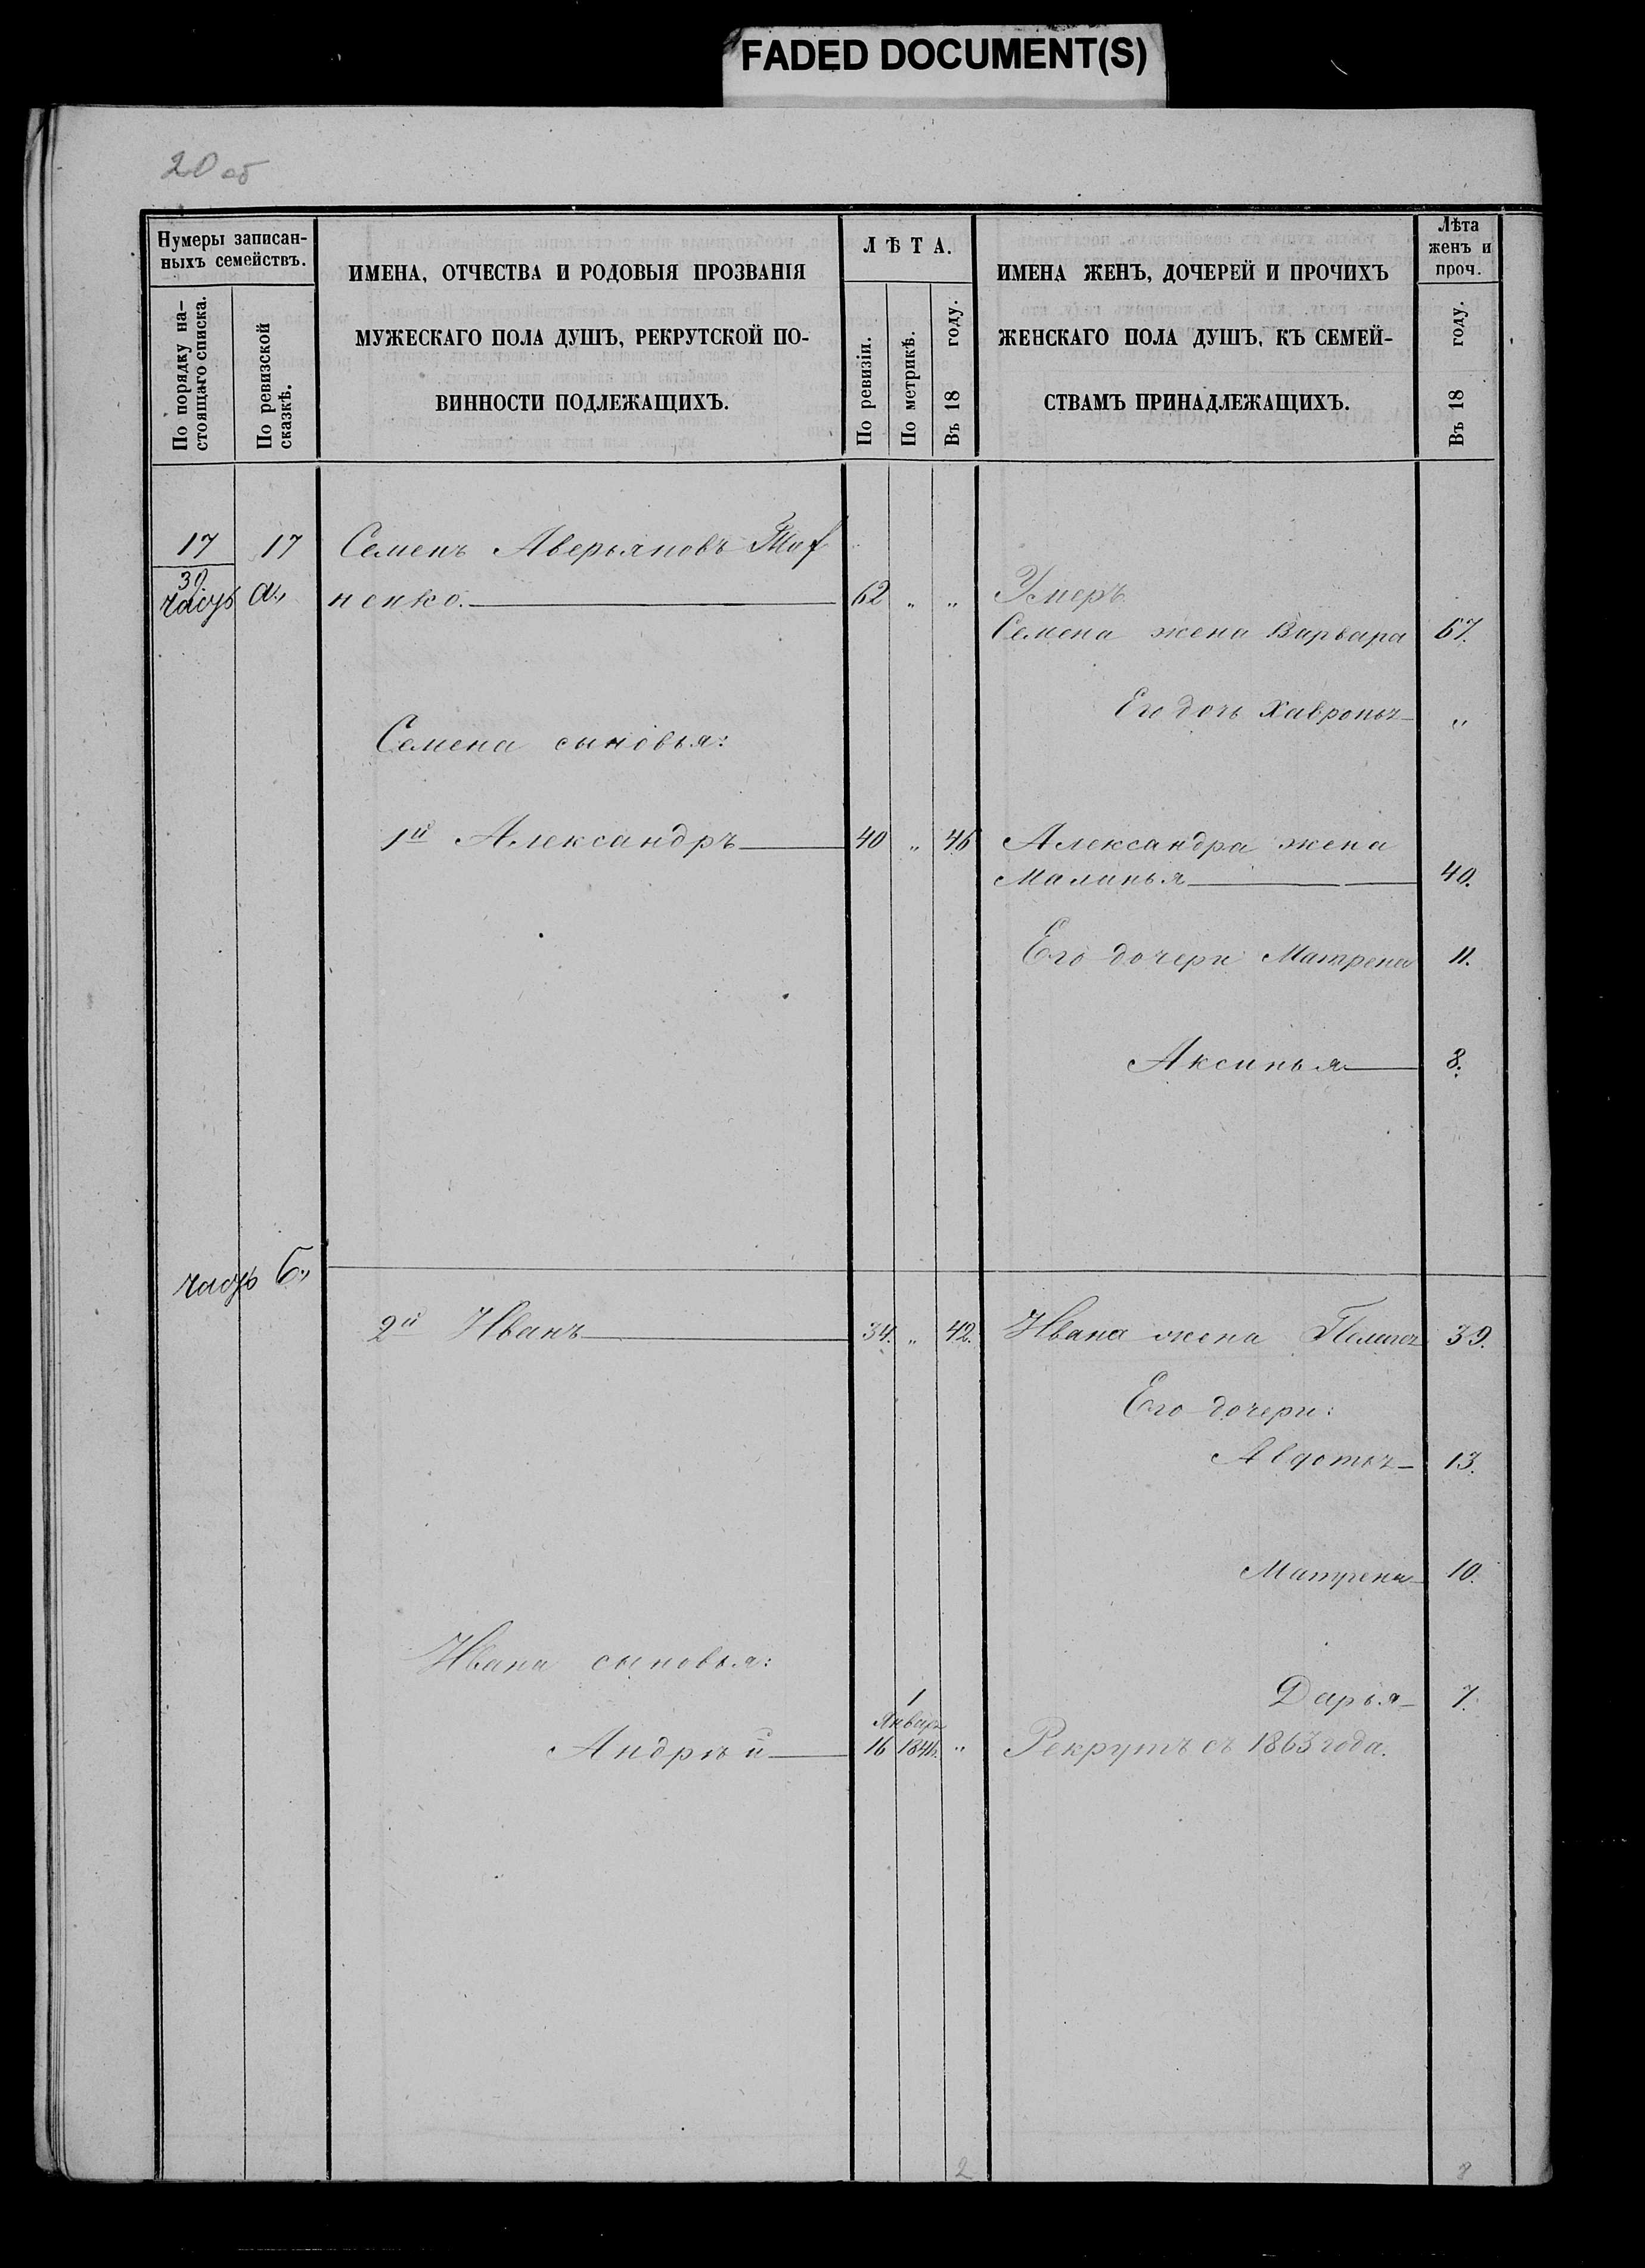 FADED DOCUMENT(S)
20 об
Нумеры записан-
ныхъ семействъ.
По порядку на-
стоящаго списка.
По ревизской
сказкѣ.
ИМЕНА, ОТЧЕСТВА И РОДОВЫЯ ПРОЗВАНІЯ
МУЖЕСКАГО ПОЛА ДУШЪ, РЕКРУТСКОЙ ПО-
ВИННОСТИ ПОДЛЕЖАЩИХЪ.
ЛѢТА.
По ревизіи.
По метрикѣ.
Въ 18 году.
ИМЕНА ЖЕНЪ, ДОЧЕРЕЙ И ПРОЧИХЪ
ЖЕНСКАГО ПОЛА ДУШЪ, КЪ СЕМЕЙ-
СТВАМЪ ПРИНАДЛЕЖАЩИХЪ.
Лѣта
женъ и
проч.
Въ 18 году.
17 17 Семенъ Аверьяновъ
30
часть а., ненко. 62 „ „ Умеръ
Семена жена Варвара 67.
Его дочь Хавронья „
Семена сыновья:
1й Александръ 40 „ 46 Александра жена
Маланья 40.
Его дочери Матрена 11.
Аксинья 8.
часть б.,
2й Иванъ 34. „ 42. Ивана жена Пелагея 39.
Его дочери:
Авдотья 13.
Матрена 10.
Ивана сыновья:
Дарья 7.
1
Январ
Андрѣй 16 184 „ Рекрутъ съ 1863 года.
2 8